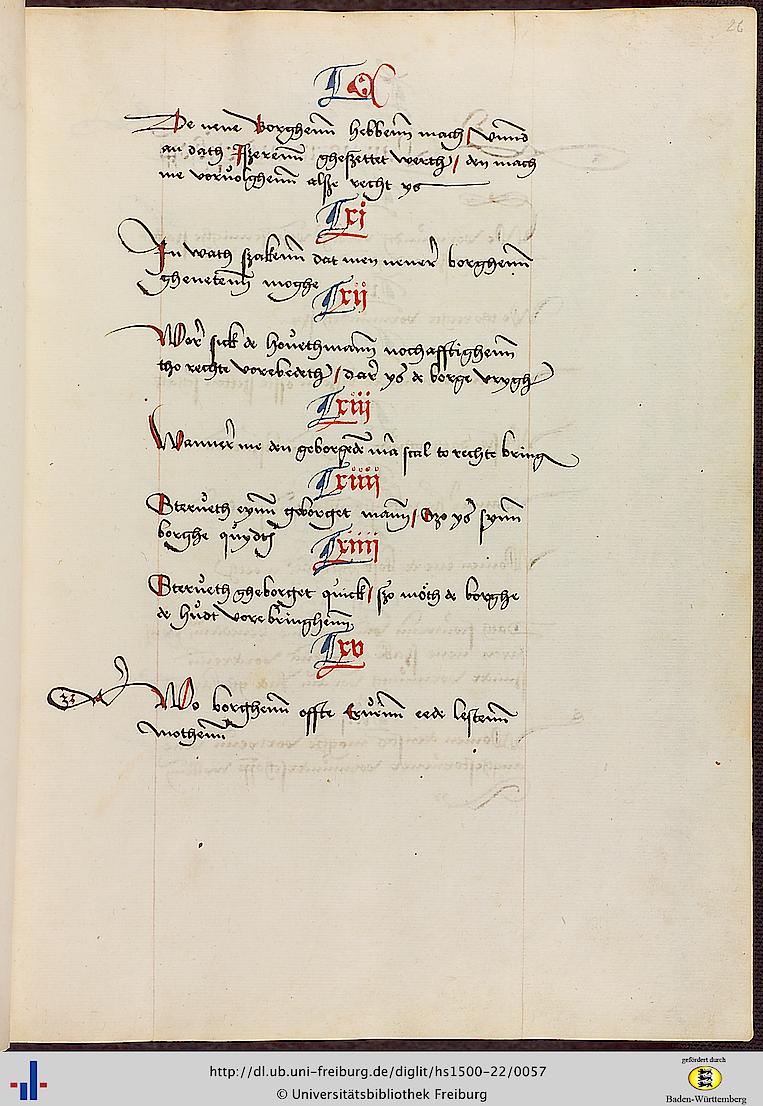 26
x
De nene borghenn hebbenn mach / vnnd
an dath ysserenn ghesettet werth / den mach
me voruolghenn alsze recht ys
xj
In wath szakenn dat men nener borghenn
ghenetenn moghe
xij
Wor sick de houethmann nochafftighenn
tho rechte vorebedeth / dar ys de borge vrygh
xiij
Wanner me den geborgede mā scal to rechte bring
xiiij
Sterueth eynn geborget mann / Szo ys synn
borghe quydt
xiiij
Sterueth gheborget quick / szo moth de borghe
de hudt vorebringhenn
xv
Wo borghenn offte eede lestenn
mothenn
http://dl.ub.uni-freiburg.de/diglit/hs1500-22/0057
© Universitätsbibliothek Freiburg
gefördert durch
Baden-Württemberg